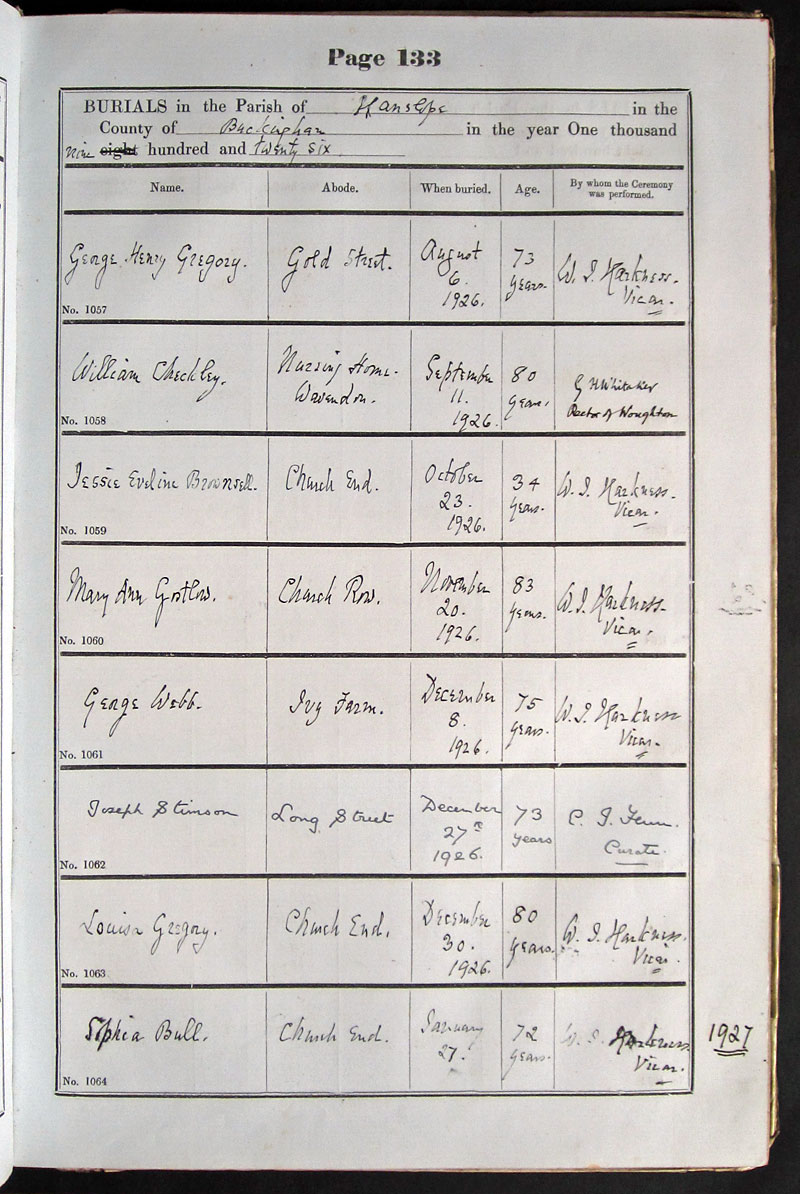 Page 133
BURIALS in the Parish of Hanslope in the
County of Buckingham in the year One thousand
nine eight hundred and twenty six
Name. Abode. When buried. Age. By whom the Ceremony was performed.
George Henry Gregory. Gold Street. August 6. 1926. 73 years. W. J. Harkness. Vicar.
No. 1057
William Checkley. Nursing Home. Wavendon. September 11. 1926. 80 years. G H Whitaker Rector of Woughton
No. 1058
Jessie Eveline Brownsell. Church End. October 23. 1926. 34 years. W. J. Harkness. Vicar.
No. 1059
Mary Ann Gostlow. Church Row. November 20. 1926. 83 years. W. J. Harkness. Vicar.
No. 1060
George Webb. Ivy Farm. December 8. 1926. 75 years. W. J. Harkness Vicar.
No. 1061
Joseph Stimson Long Street December 27th 1926. 73 years C. J. Fenn. Curate.
No. 1062
Louisa Gregory. Church End. December 30. 1926. 80 years. W. J. Harkness. Vicar.
No. 1063
Sophia Bull. Church End. January 27. 72 years. W. J. Harkness. Vicar. 1927
No. 1064